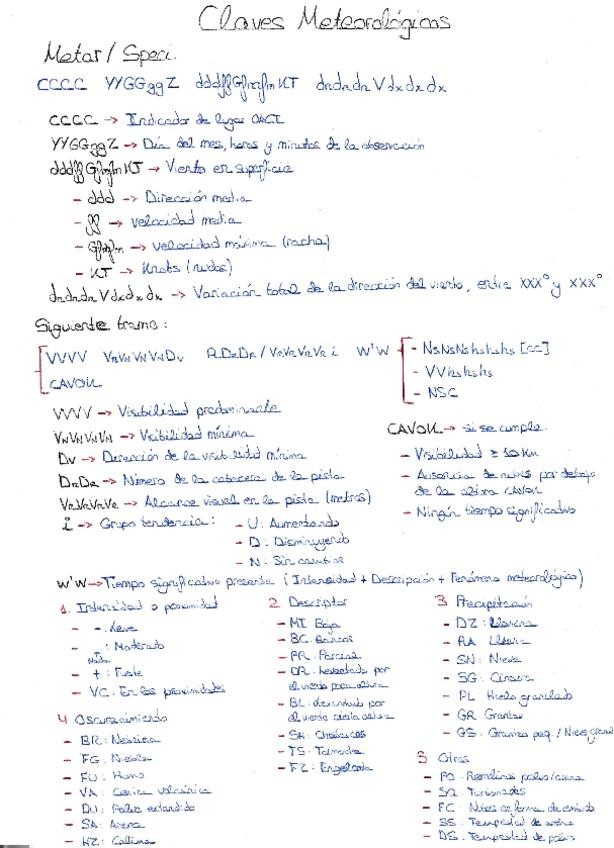 Claves Meteorológicas
Metar / Speci.
CCCC YYGGggZ dddffGfmfmKT dndndnVdxdxdx
CCCC → Indicador de lugar OACI
YYGGggZ → Día del mes, horas y minutos de la observación
dddffGfmfmKT → Viento en superficie
- ddd → Dirección media
- ff → velocidad media
- Gfmfm → velocidad máxima (racha)
- KT → Knots (nudos)
dndndnVdxdxdx → Variación total de la dirección del viento, entre XXX° y XXX°
Siguiente tramo:
VVVV VNVNVNVNDV RDRDR/VRVRVRVR i W'W' - NsNsNshshshs [cc]
CAVOK - VVhshshs
- NSC
VVVV → Visibilidad predominante
VNVNVNVN → Visibilidad mínima
DV → Dirección de la visibilidad mínima
DRDR → Número de la cabecera de la pista
VRVRVRVR → Alcance visual en la pista (metros)
i → Grupo tendencia: - U: Aumentando
- D: Disminuyendo
- N: Sin cambios
CAVOK → si se cumple:
- Visibilidad ≥ 10 Km
- Ausencia de nubes por debajo
de la altura CAVOK
- Ningún tiempo significativo
W'W' → Tiempo significativo presente (Intensidad + Descripción + Fenómeno meteorológico)
1. Intensidad o proximidad
- - : Leve
- : Moderado
Nada
- + : Fuerte
- VC: En las proximidades
2 Descriptor
- MI: Baja
- BC: Bancos
- PR: Parcial
- DR: Levantado por
el viento poca altura
- BL: Levantado por
el viento cierta altura
- SH: Chubascos
- TS: Tormenta
- FZ: Engelante
3 Precipitación
- DZ: Llovizna
- RA: Lluvia
- SN: Nieve
- SG: Cinarra
- PL Hielo granulado
- GR Granizo
- GS: Granizo peq. / Nieve granul
4 Oscurecimiento
- BR: Neblina
- FG: Niebla
- FU: Humo
- VA: Ceniza volcánica
- DU: Polvo extendido
- SA: Arena
- HZ: Calima
5 Otros
- PO: Remolinos polvo/arena
- SQ: Turbonadas
- FC: Nubes en forma de embudo
- SS: Tempestad de arena
- DS: Tempestad de polvo